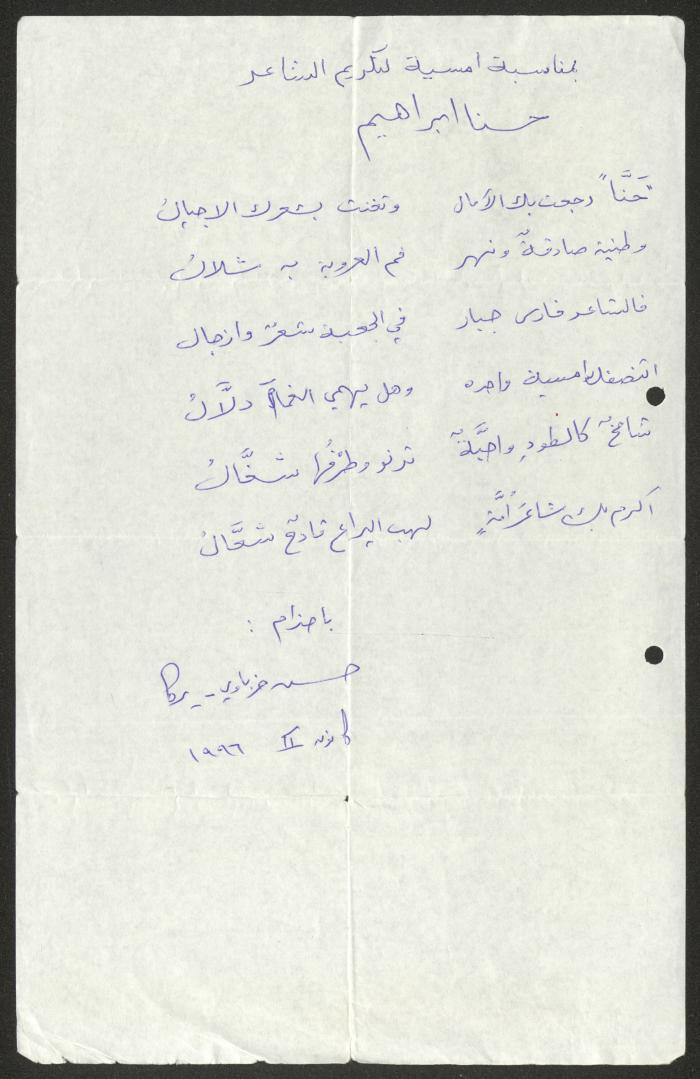 بمناسبة امسية لتكريم الشاعر
حنا ابراهيم
"حَنَّا" رجعت بك الآمال وتغنت بشعرك الاجيالُ
وطنية صادقةٌ ونهر فم العروبة به شلالُ
فالشاعر فارس جبار في الجعبة شعرٌ وازجال
اتنصفك امسية واحده وهل يهمي الغمام دلَّالُ
شامخٌ كالطودِ تدنو وطرْفُها شغَّالُ
اكرم بك شاعرَ أمَّةٍ لهب اليراع قادحٌ شعَّالُ
باحترام :
حسن - يركا
كانون II ١٩٩٦